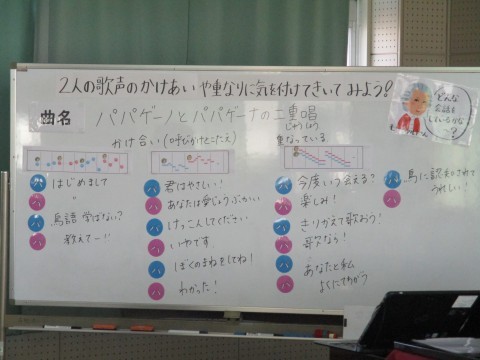 2人の歌声のかけあいや重なりに気を付けてきいてみよう?
曲名 パパゲーノとパパゲーナの二重唱
じゅうしょう
かけ合い(呼びかけとこたえ)
重なっている
どんな
会話を
しているかな
?
パ はじめまして
パ 〃
パ 鳥語 学ばない?
パ 教えてー
パ 君はやさしい!
パ あなたは
パ けっこんしてください
パ いやです
パ ぼくのまねをしてね!
パ わかった!
パ 今度いつ会える?
パ 楽しみ!
パ きりかえて歌おう!
パ 歌なら!
パ あなたと私
パ よくにてちがう
パ 鳥に認められて
パ うれしい!